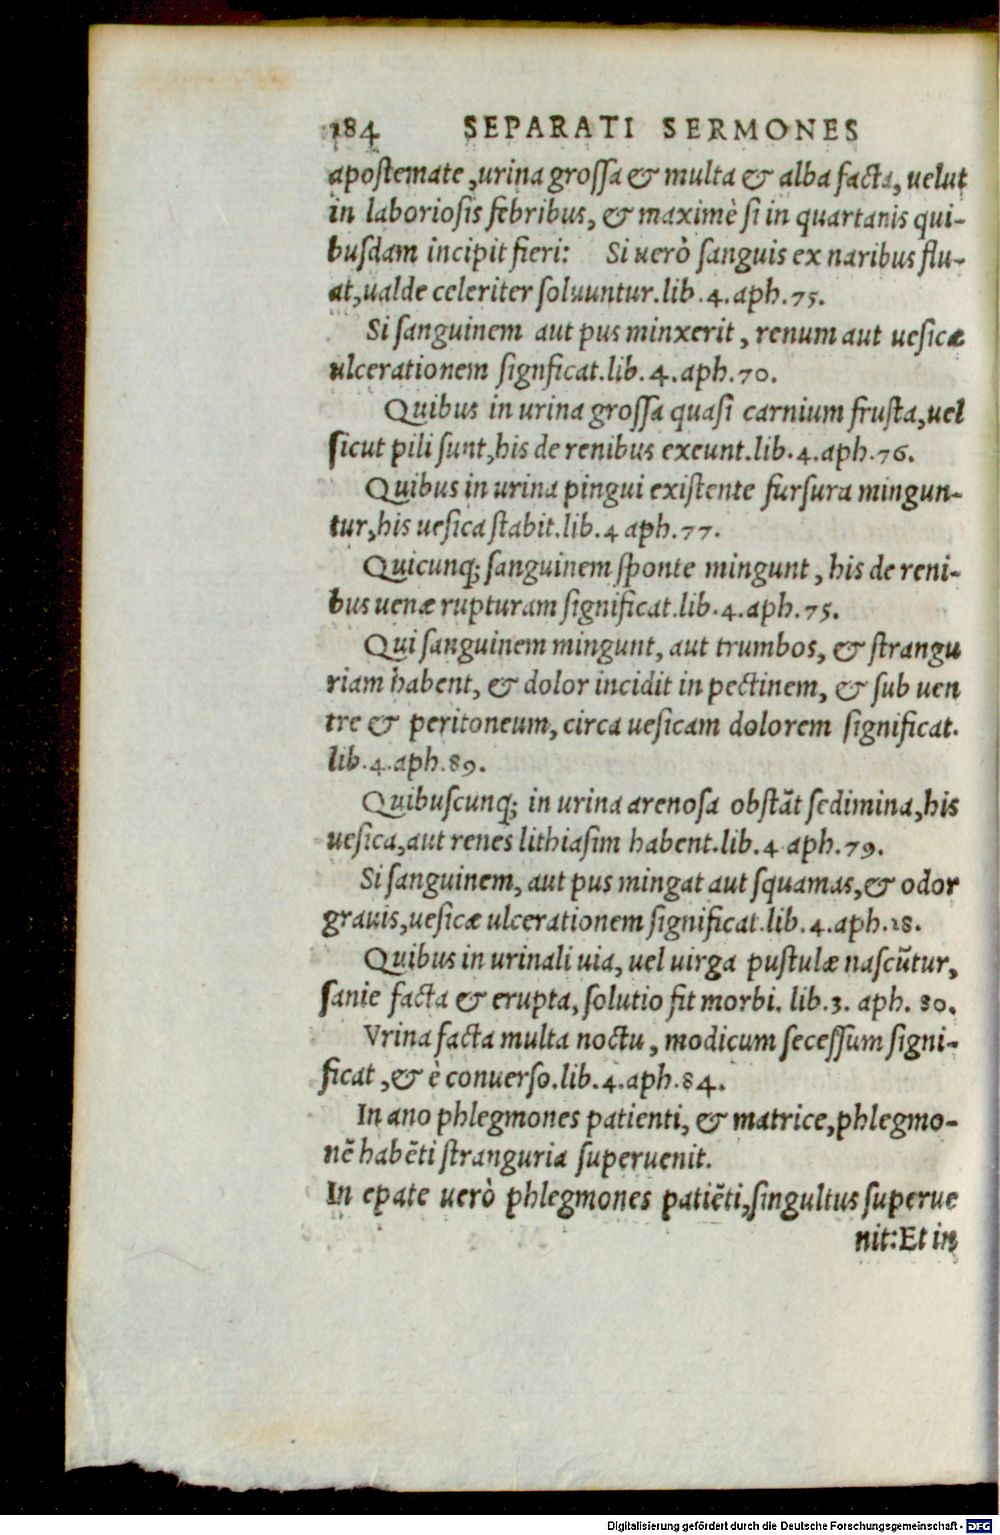 184 SEPARATI SERMONES
apoſtemate, urina groſſa & multa & alba facta, uelut
in laborioſis febribus, & maximè ſi in quartanis qui-
buſdam incipit fieri: Si uerò ſanguis ex naribus flu-
at, ualde celeriter ſoluuntur. lib. 4. aph. 75.
Si ſanguinem aut pus minxerit, renum aut ueſicæ
ulcerationem ſignficat. lib. 4. aph. 70.
Quibus in urina groſſa quaſi carnium fruſta, uel
ſicut pili ſunt, his de renibus exeunt. lib. 4. aph. 76.
Quibus in urina pingui exiſtente furfura mingun-
tur, his ueſica ſtabit. lib. 4 aph. 77.
Quicunq; ſanguinem ſponte mingunt, his de reni-
bus uenæ rupturam ſignificat. lib. 4. aph. 75.
Qui ſanguinem mingunt, aut trumbos, & ſtrangu
riam habent, & dolor incidit in pectinem, & ſub uen
tre & peritoneum, circa ueſicam dolorem ſignificat.
lib. 4. aph. 89.
Quibuſcunq; in urina arenoſa obſtãt ſedimina, his
ueſica, aut renes lithiaſim habent. lib. 4 aph. 79.
Si ſanguinem, aut pus mingat aut ſquamas, & odor
grauis, ueſicæ ulcerationem ſignificat. lib. 4. aph. 18.
Quibus in urinali uia, uel uirga puſtulæ naſcũtur,
ſanie facta & erupta, ſolutio fit morbi. lib. 3. aph. 80.
Vrina facta multa noctu, modicum ſeceſſum ſigni-
ficat, & è conuerſo. lib. 4. aph. 84.
In ano phlegmones patienti, & matrice, phlegmo-
nẽ habẽti ſtranguria ſuperuenit.
In epate uerò phlegmones patiẽti, ſingultus ſuperue
nit: Et in
Digitalisierung gefördert durch die Deutsche Forschungsgemeinschaft - DFG